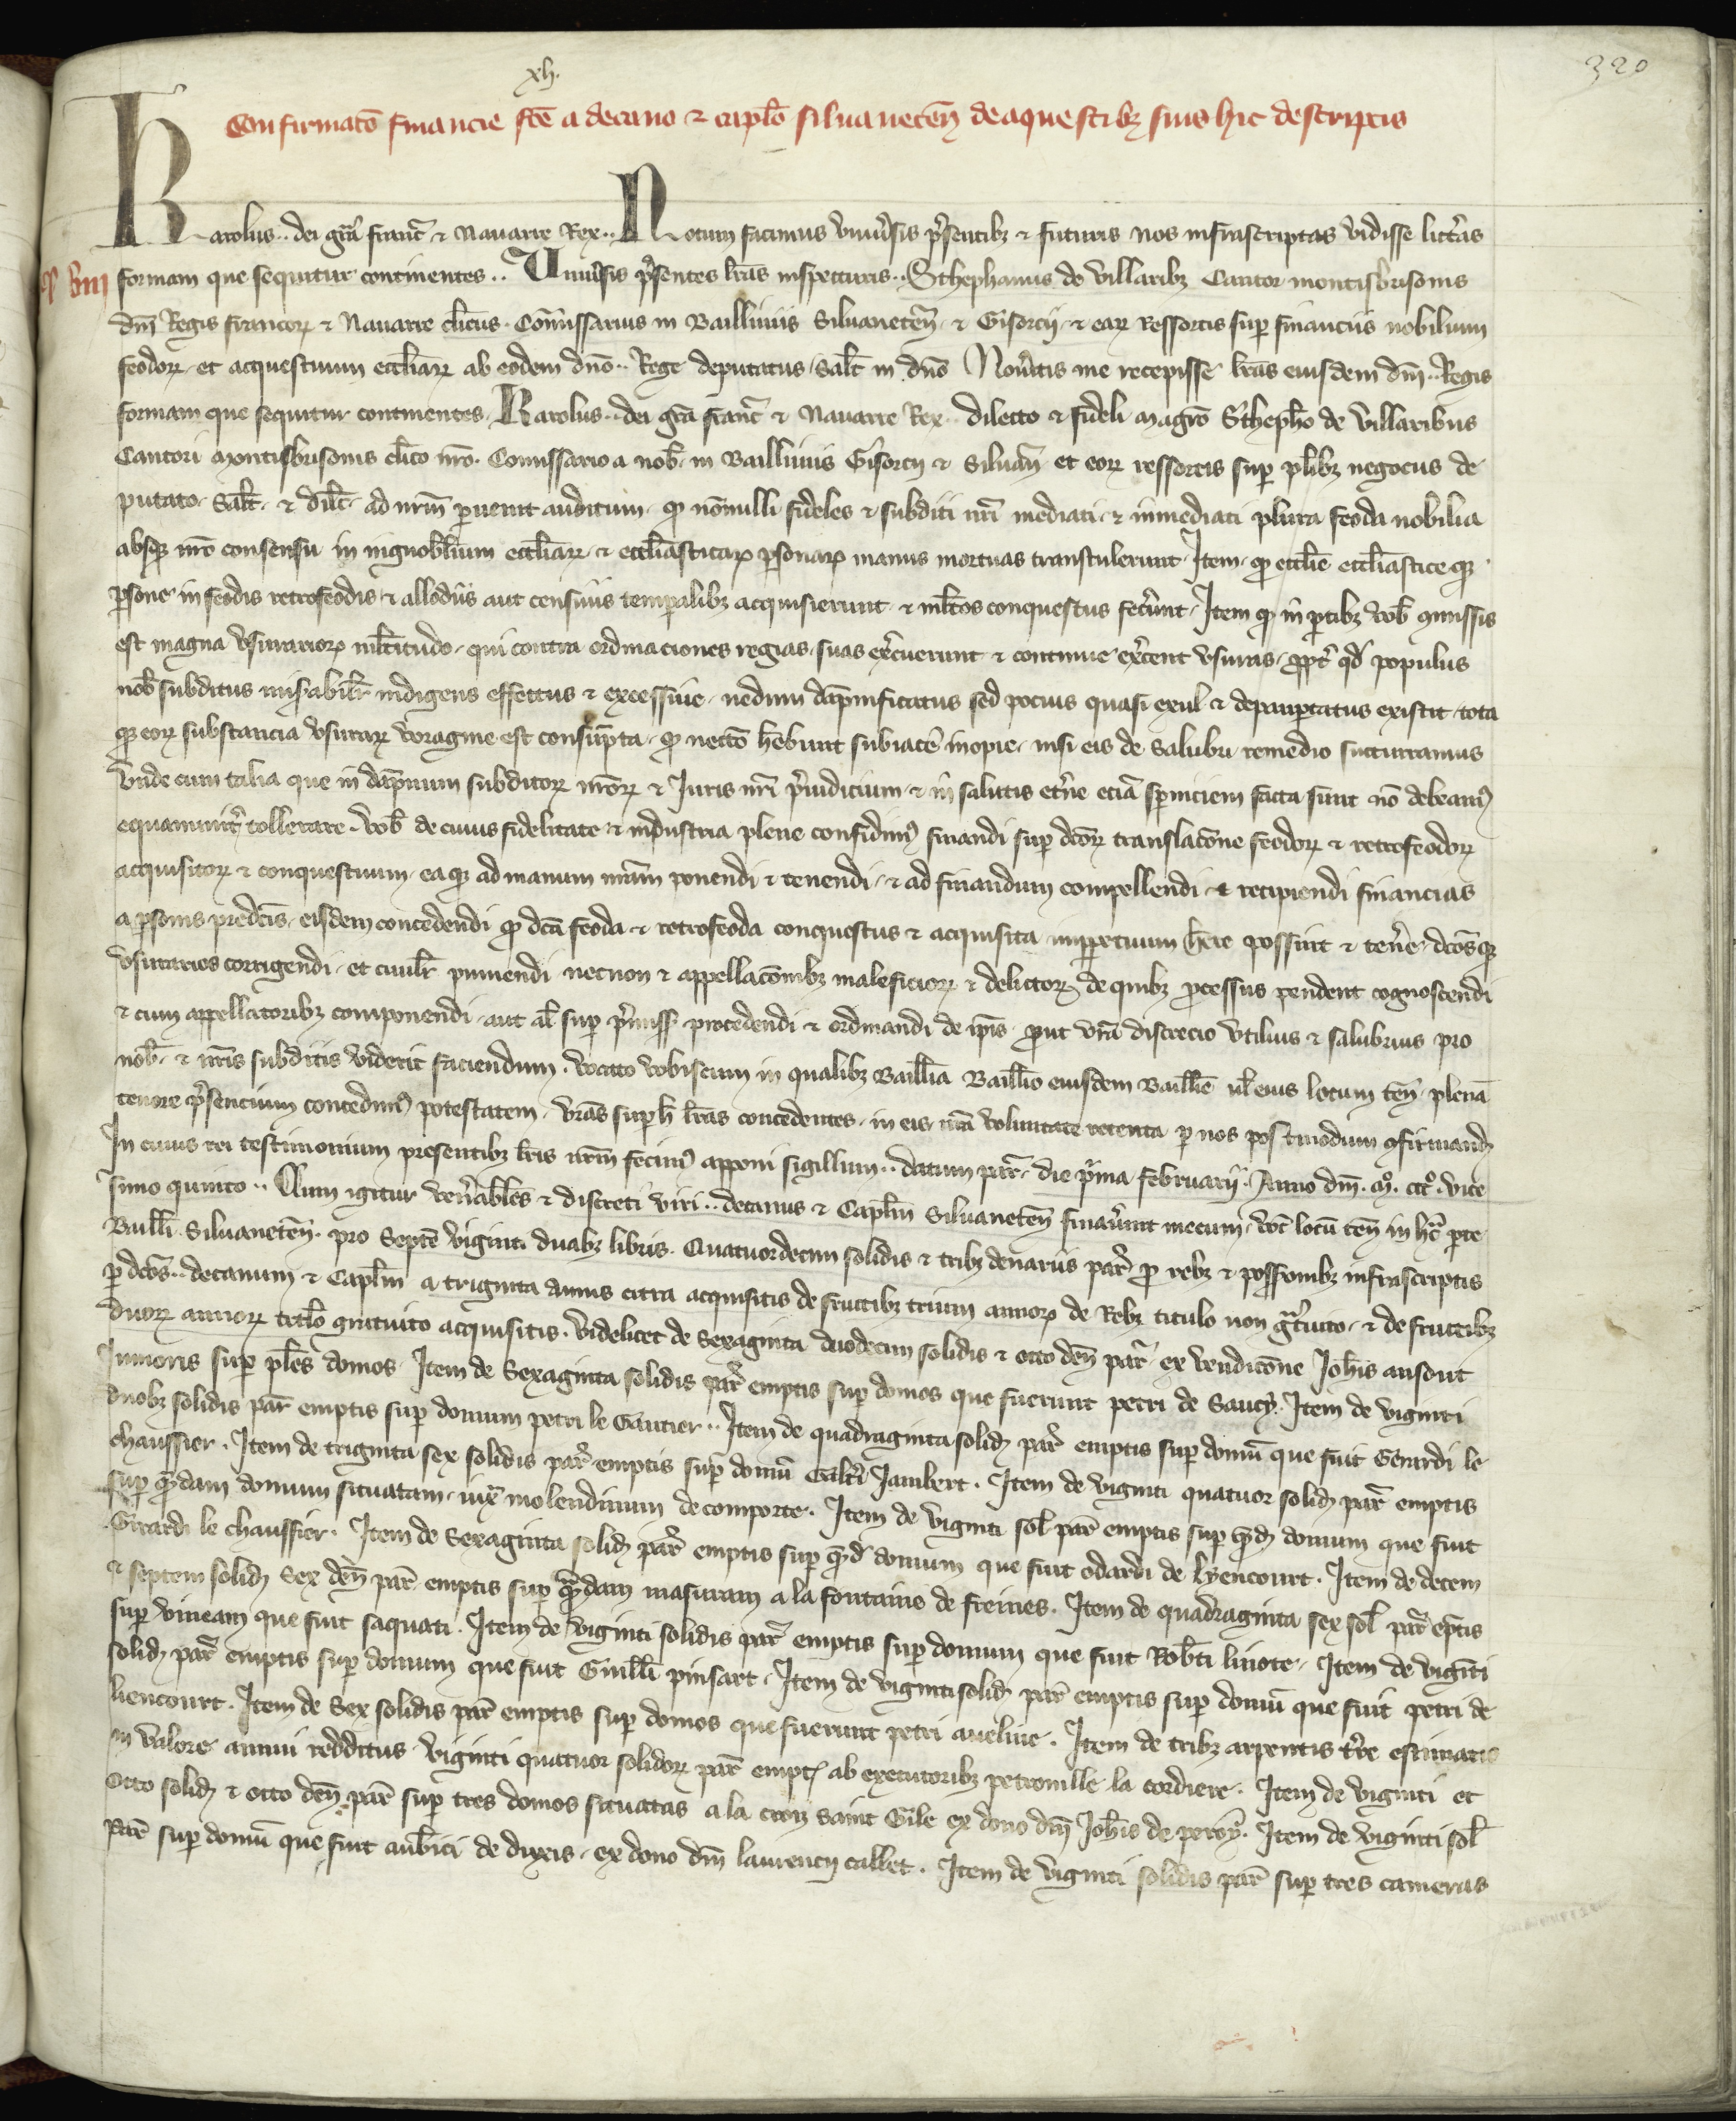 320
xl.
Confirmatō financie fcē a decano ⁊ capl̄o siluanecēn̄ de aquestibꝫ suis hic descriptis
Karolus .. dei gr̄a franc̄ ⁊ Nauarre Rex .. Notum facimus vniu̾sis p̄sentibꝫ ⁊ futuris nos infrascriptas vidisse litt̾as
formam que sequitur continentes .. Vniu̾sis p̄sentes lr̄as inspecturis .. Sthephanus de villaribꝫ Cantor montisbrisonis
dn̄i Regis francoꝝ ⁊ Nauarre cl̄icus . Com̄issarius in Bailliuiis Siluanetēn̄ ⁊ Gisorcij ⁊ eaꝝ ressortis sup̱ financiis nobilium
feodoꝝ et acquestuum eccl̄iaꝝ ab eodem dn̄o .. Rege deputatus Sal̄t in dn̄o Nou̾itis me recepisse lr̄as eiusdem dn̄i .. Regis
formam que sequitur continentes . Karolus .. dei gr̄a franc̄ ⁊ Nauarre Rex .. dilecto ⁊ fideli magr̄o Sthepho de villaribus
Cantori montisbrisonis cl̄ico nr̄o . Comissario a nob̄ in Bailliuiis Gisorcij ⁊ Siluan̄ et eoꝝ ressortis sup̱ pl̄ibꝫ negociis de
putato . Sal̄t . ⁊ dil̄c . ad nr̄m p̱uenit auditum . ꝙ nōnulli fideles ⁊ subditi nr̄i mediati ⁊ inmediati plura feoda nobilia
absqꝫ nr̄o consensu in ingnobilium eccl̄iaꝝ ⁊ eccl̄iasticaꝝ p̱sonaꝝ manus mortuas transtulerunt . Item ꝙ eccl̄ie eccl̄iasticeqꝫ
p̱sone in feodis retrofeodis ⁊ allodiis aut censiuis temp̱alibꝫ acquisierunt ⁊ ml̄tos conquestus fec̾unt . Item ꝙ in p̱tibꝫ vob̄ ꝯmissis
est magna vsurarioꝝ ml̄titudo . qui contra ordinaciones regias suas ex̾cuerunt ⁊ continue ex̾cent vsuras . ꝓpt̾ qd̄ populus
nob̄ subditus mis̾abilit̾ indigens effectus ⁊ excessiue nedum dāpnificatus sed pocius quasi exul ⁊ depaup̱tatus existit . tota
qꝫ eoꝝ substancia vsuraꝝ voragine est consūpta . ꝙ neccō hēbunt subiac̾e inopie . nisi eis de salubri remedio succurramus
Vnde cum talia que in dāpnum subditoꝝ nr̄oꝝ ⁊ Iuris nr̄i p̄iudicium ⁊ in salutis et̾ne eciā p̱niciem facta sunt nō debeamꝰ
equanimit̾ tollerare . vob̄ de cuius fidelitate ⁊ industria plene confidimꝰ finandi sup̱ dcōꝝ translacōne feodoꝝ ⁊ retrofeodoꝝ
acquisitoꝝ ⁊ conquestuum . eaqꝫ ad manum nr̄am ponendi ⁊ tenendi . ⁊ ad finandum compellendi ⁊ recipiendi financias
a p̱sonis predc̄is . eisdem concedendi ꝙ dc̄a feoda ⁊ retrofeoda conquestus ⁊ acquisita imp̱petuum hēre possint ⁊ ten̾e . dcōsqꝫ
vsurarios corrigendi . et ciuilit̾ puniendi necnon ⁊ appellacōnibꝫ maleficioꝝ ⁊ delictoꝝ de quibꝫ ꝓcessus pendent cognoscendi
⁊ cum appellatoribꝫ componendi . aut al̄ sup̱ p̄miss̄ procedendi ⁊ ordinandi de ip̄is . ꝓut vr̄a discrecio vtilius ⁊ salubrius pro
nob̄ . ⁊ nr̄is subditis viderit faciendum . vocato vobiscum in qualibꝫ Baill̄ia Baill̄io eiusdem Baill̄ie ul̄ eius locum ten̄ . plenā
tenore p̄sencium concedimꝰ potestatem . vr̄as sup̱ h̄ lr̄as concedentes . in eis nr̄a voluntate retenta p̱ nos postmodum ꝯfirmandꝫ
In cuius rei testimonium presentibꝫ lr̄is nr̄m fecimꝰ apponi sigillum .. datum par̾ . die p̾ma februarij . Anno dn̄i . mᵒ . cccᵒ . vice
simo quinto .. Cum igitur ven̾abiles ⁊ discreti viri .. decanus ⁊ Capl̄m Siluanetēn̄ finau̾unt mecum . voc̄ locū ten̄ in hc̄ p̱te
Baill̄i Siluanetēn̄ . pro Septē viginti duabꝫ libris . Quatuordecim solidis ⁊ tribꝫ denariis par̾ ꝓ rebꝫ ⁊ possōnibꝫ infrascriptis
p̱ dcōs .. decanum ⁊ Capl̄m a triginta annis citra acquisitis de fructibꝫ trium annoꝝ de Rebꝫ titulo non gᵃtuito . ⁊ de fructibꝫ
duoꝝ annoꝝ titl̄o gratuito acquisitis . videlicet de Sexaginta duodecim solidis ⁊ octo den̄ par̾ ex vendicōne Ioh̄is ansout
Iunioris sup̱ pl̄es domos . Item de Sexaginta solidis par̾ emptis sup̱ domos que fuerunt petri de Saucy . Item de viginti
duobꝫ solidis par̾ emptis sup̱ domum petri le Gantier .. Item de quadraginta solidꝫ par̾ emptis sup̱ domū que fuit Gerardi le
chaussier . Item de triginta sex solidis par̾ emptis sup̱ domū Galt̾i Iambert . Item de viginti quatuor solidꝫ par̾ emptis
sup̱ qᵃndam domum situatam . iux̾ molendinum de comporte . Item de viginti sol̄ par̾ emptis sup̱ qᵃndꝫ domum que fuit
Girardi le chaussier . Item de Sexaginta solidꝫ par̾ emptis sup̱ qᵃnd̄ domum que fuit odardi de lyencourt . Item de decem
⁊ septem solidꝫ Sex den̄ par̾ emptis sup̱ qᵃndam masuram a la fontaine de freines . Item de quadraginta sex sol̄ par̾ ep̄tis
sup̱ vineam que fuit saquati . Item de viginti solidis par̾ emptis sup̱ domum que fuit Rob̄ti linote . Item de viginti
solidꝫ par̾ emptis sup̱ domum que fuit Guill̄i pinsart . Item de viginti solidꝫ par̾ emptis sup̱ domū que fuit petri de
liencourt . Item de Sex solidis par̾ emptis sup̱ domos que fuerunt petri aueline . Item de tribꝫ arpentis t̾re estimatis
in valore annui redditus viginti quatuor solidoꝝ par̾ empt̄ ab executoribꝫ petronille la cordiere . Item de viginti et
octo solidꝫ ⁊ octo den̄ par̾ sup̱ tres domos situatas a la croiz saint Gile ex dono dn̄i Ioh̄is de peroy . Item de viginti sol̄
par̾ sup̱ domū que fuit aub̄ici de duxis . ex dono dn̄i laurencij callet . Item de viginti solidis par̾ sup̱ tres cameras